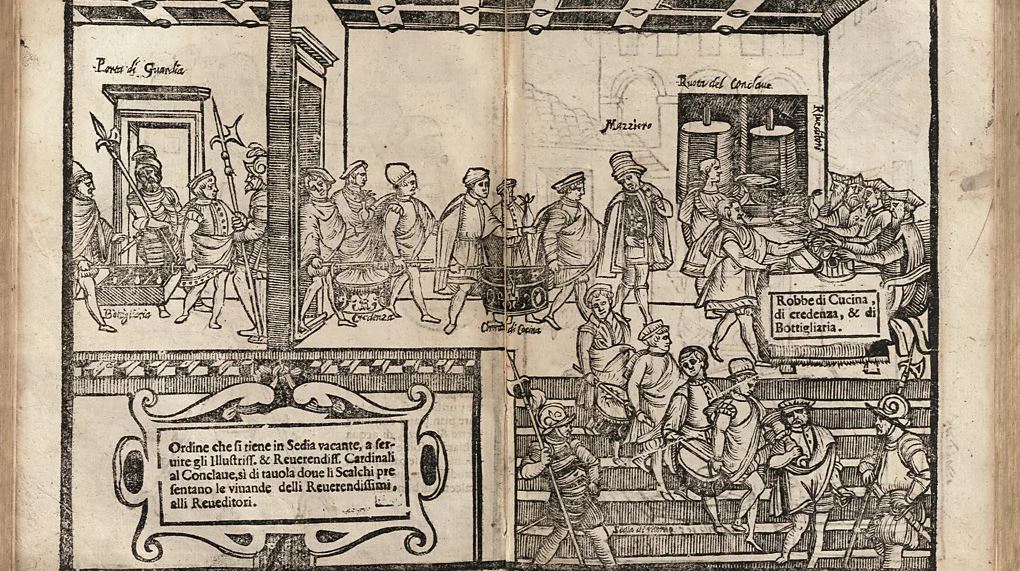 Porta di Guardia
Mazziero
Ruota del Conclaue
Riueditori
Bottigliaria
Credenza
di Cucina
Robbe di Cucina,
di credenza, & di
Bottigliaria.
Ordine che si tiene in Sedia vacante, a ser-
uire gli Illustriss. & Reuerendiss. Cardinali
al Conclaue, sì di tauola doue li Scalchi pre
sentano le viuande delli Reuerendissimi,
alli Reueditori.